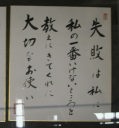 失敗は私に
私の一番いけないところを
教えにきてくれた
大切なお使い